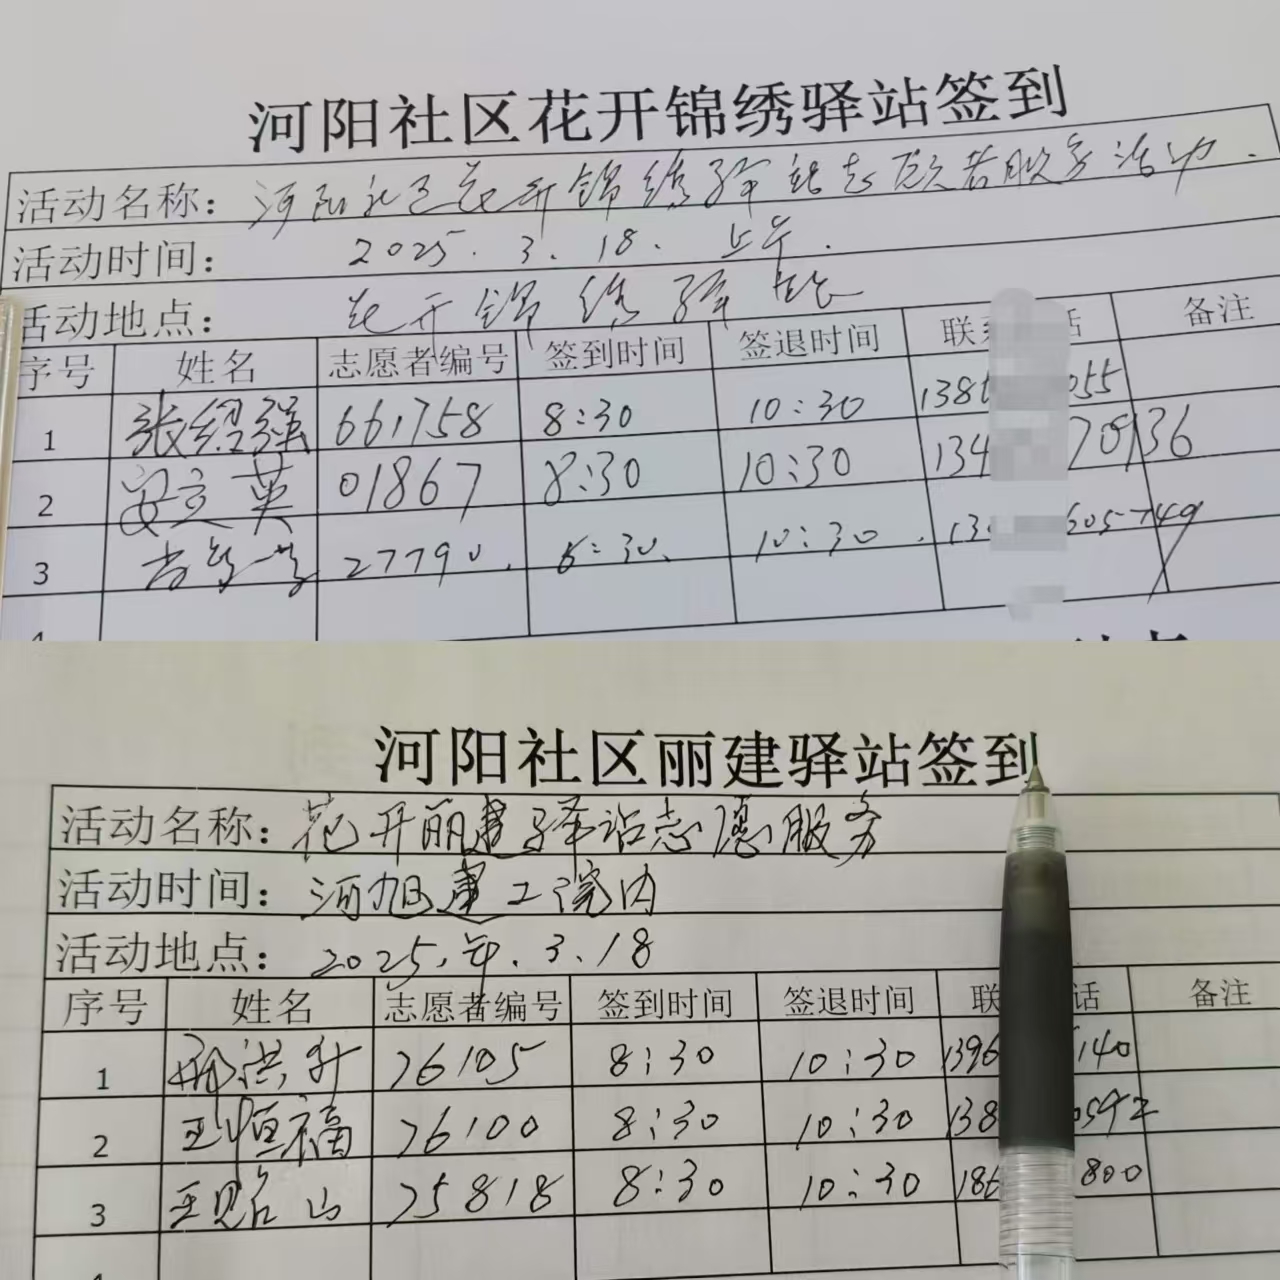 河阳社区花开锦绣驿站签到
活动名称：河阳社区花开锦绣驿站志愿者服务活动.
活动时间： 2025.3.18. 上午.
活动地点： 花开锦绣驿站
序号 姓名 志愿者编号 签到时间 签退时间 联系 话 备注
1 张绍强 661758 8:30 10:30 138 055
2 安立英 01867 8:30 10:30 134 70136
3 27790. 8:30. 10:30. 13 605749
4
河阳社区丽建驿站签到
活动名称：花开丽建驿站志愿服务
活动时间：河旭建工院内
活动地点：2025.年.3.18
序号 姓名 志愿者编号 签到时间 签退时间 联 话 备注
1 邢洪升 26105 8:30 10:30 1396 140
2 王恒福 26100 8:30 10:30 138 0592
3 王贻山 25818 8:30 10:30 186 800